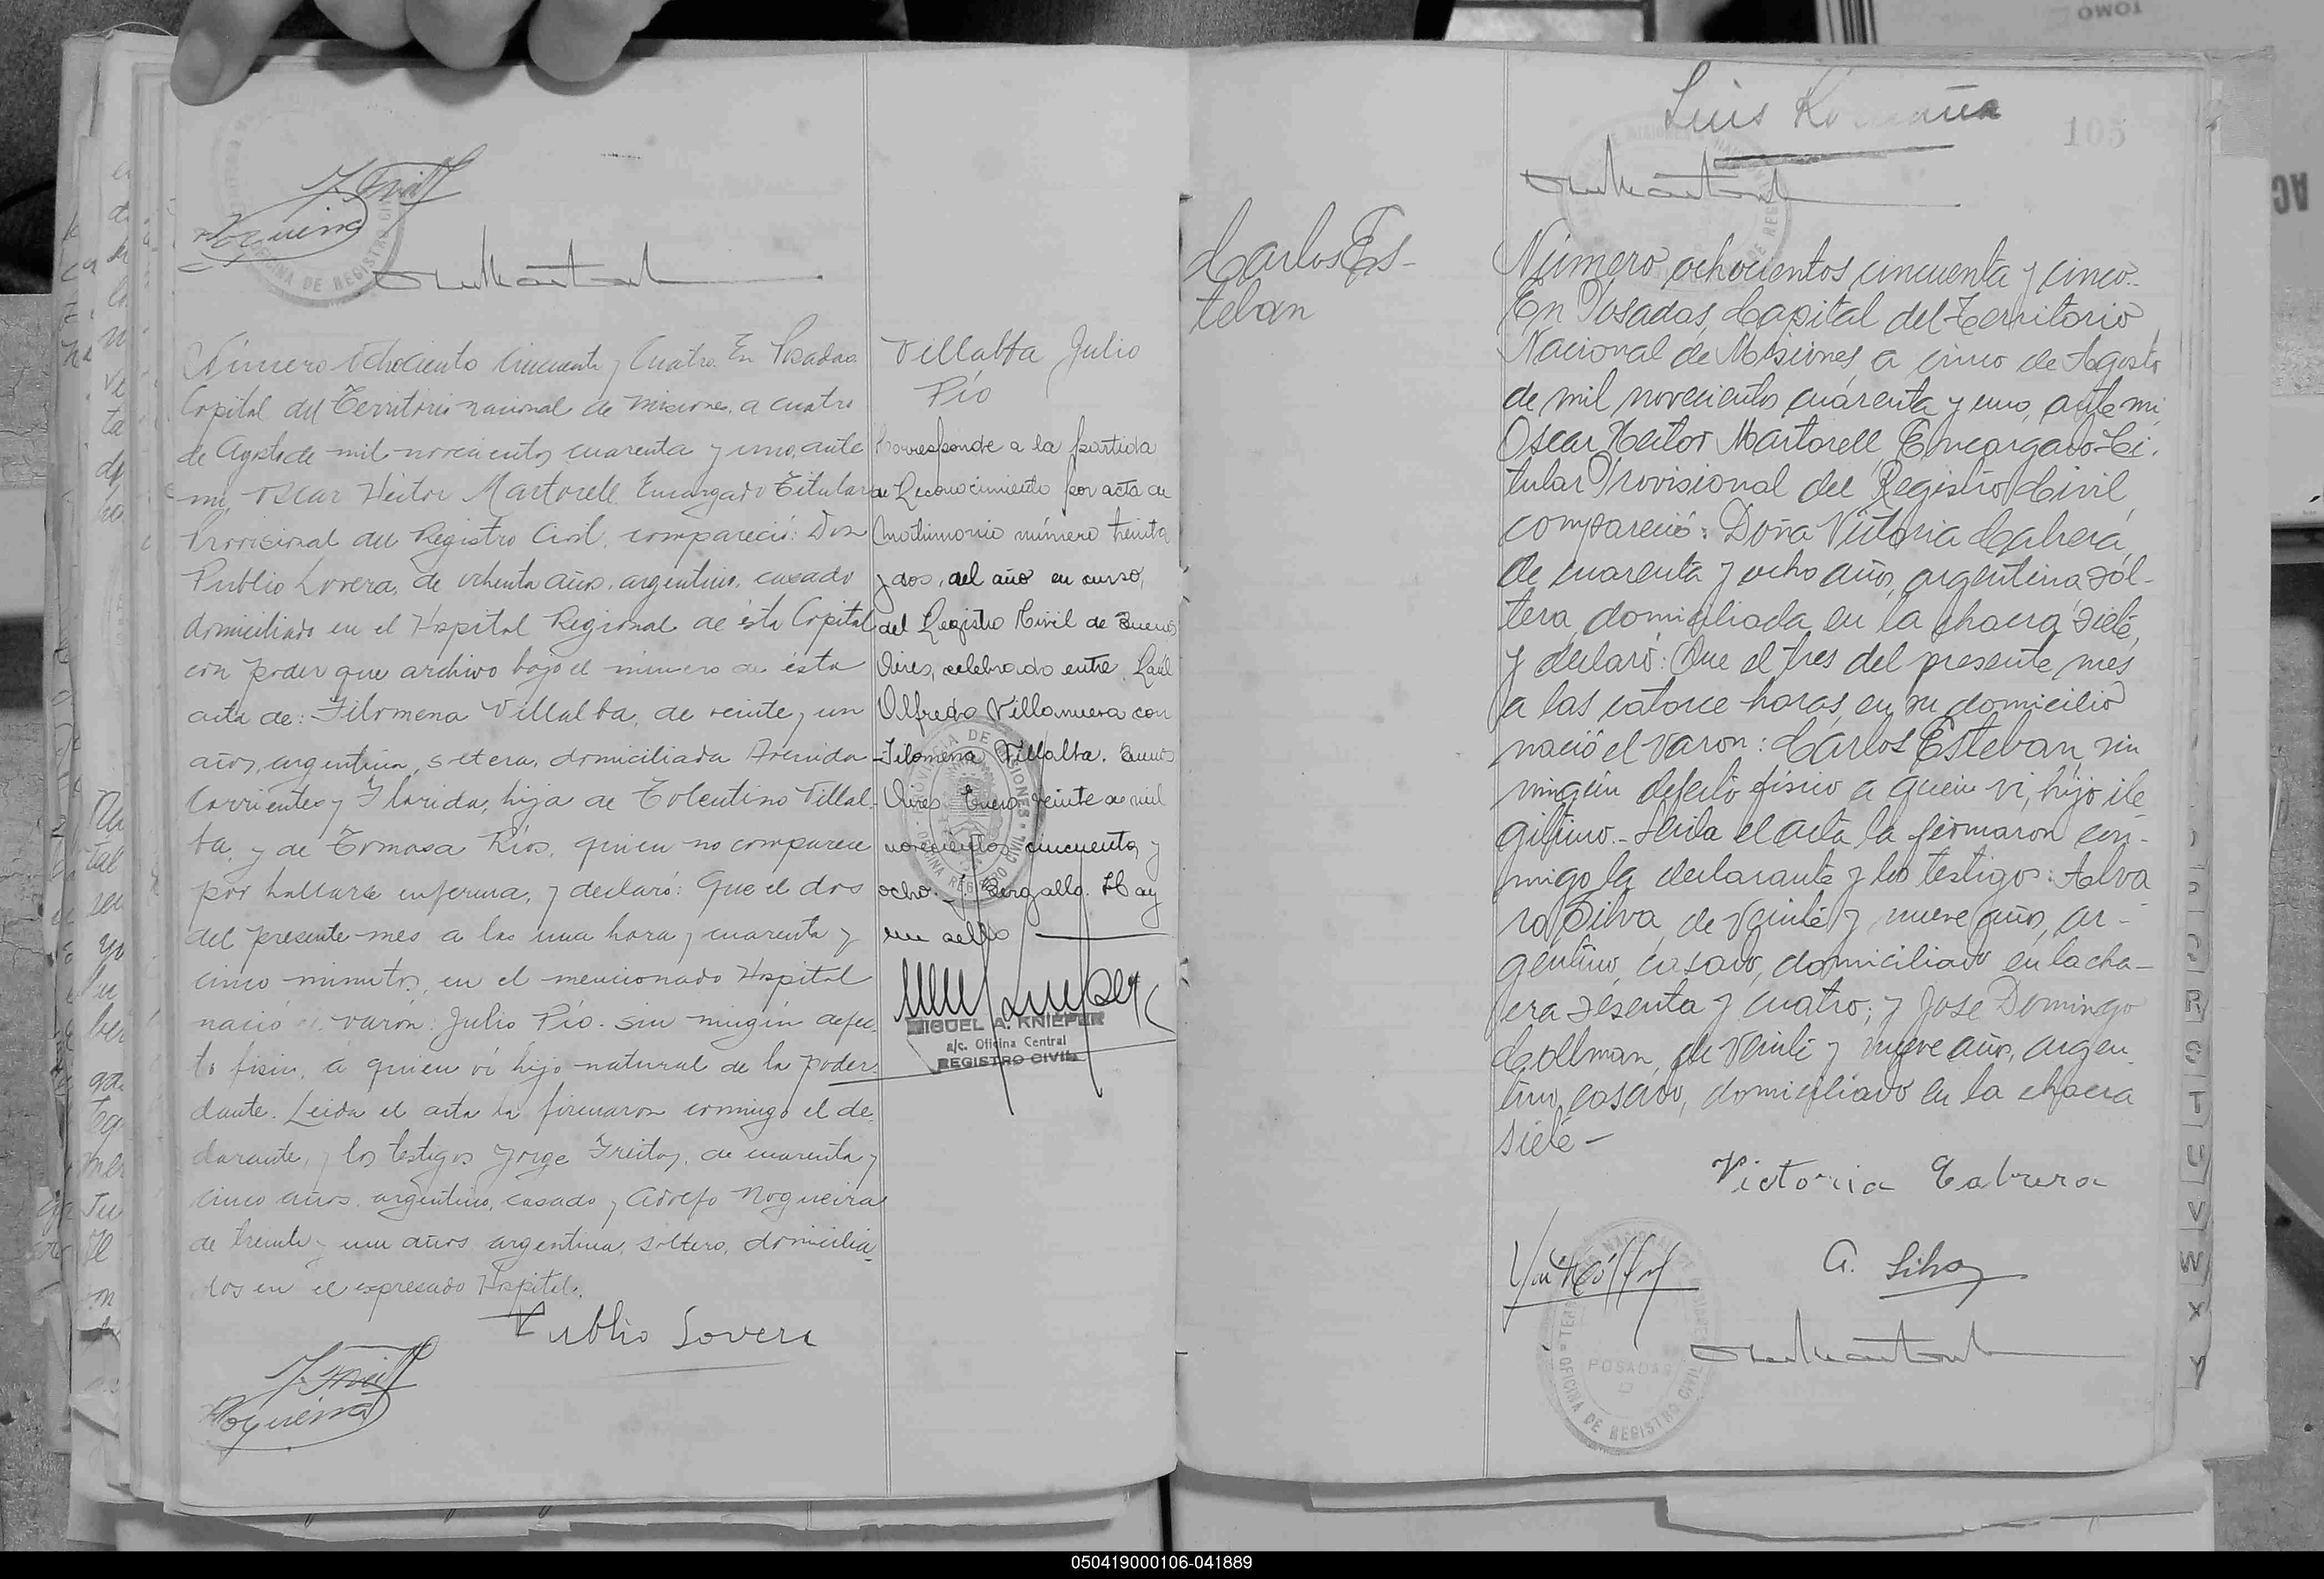 J. Freit
Nogueira
Número Ochociento Cincuenta y Cuatro. En Posadas
Capital del Territorio nacional de Misiones, a cuatro
de Agosto de mil novecientos cuarenta y uno, ante
mi, Oscar Héctor Martorell Encargado Titular
Provisional del Registro Civil, compareció: Don
Publio Lovera, de ochenta años, argentino, casado
domiciliado en el Hospital Regional de ésta Capital
con poder que archivo bajo el número de ésta
acta de: Filomena Villalba, de veinte y un
años, argentina, soltera, domiciliada Avenida
Corrientes y Florida, hija de Tolentino Villal-
ba, y de Tomasa Ríos, quien no comparece
por hallarse enferma, y declaró: Que el dos
del presente mes a las una hora y cuarenta y
cinco minutos, en el mencionado Hospital
nació el varón: Julio Pío. sin ningún defec-
to físico, a quien ví hijo natural de la poder-
dante. Leida el acta la firmaron conmigo el de-
clarante, y los testigos Jorge Freitas, de cuarenta y
cinco años, argentino, casado y Adolfo Nogueira
de treinta y un años argentino, soltero, domicilia-
dos en el expresado Hospital.
Publio Lovera
J. Freit
Nogueira
Villalba Julio
Pío
Corresponde a la partida
de Reconocimiento por acta de
Matrimonio número treinta
y dos, del año en curso,
del Registro Civil de Buenos
Aires, celebrado entre Raúl
Alfredo Villanueva con
Filomena Villalba. Buenos
Aires Enero veinte de mil
novecientos cincuenta y
ocho. Hay
un sello
MIGUEL A. KNIEPER
a/c. Oficina Central
REGISTRO CIVIL
Luis
105
Carlos Es-
teban
Número ochocientos cincuenta y cinco.-
En Posadas, Capital del Territorio
Nacional de Misiones, a cinco de Agosto
de mil novecientos cuarenta y uno, ante mi,
Oscar Héctor Martorell, Encargado Ti-
tular Provisional del Registro Civil,
compareció: Doña Victoria Cabrera,
de cuarenta y ocho años, argentina, sol-
tera, domiciliada en la chacra siete,
y declaró: Que el tres del presente mes
a las catorce horas, en su domicilio
nació el varon: Carlos Esteban, sin
ningún defecto físico a quien vi, hijo ile
gítimo.- Leída el acta la firmaron con-
migo la declarante y los testigos: Alva
ro Silva, de veinte y nueve años, ar-
gentino, casado, domiciliado en la cha-
cra sesenta y cuatro; y José Domingo
Collman, de veinte y nueve años, argen-
tino, casado, domiciliado en la chacra
siete -
Victoria Cabrera
A. Silva
POSADAS
OFICINA DE REGISTRO CIVIL
R
S
T
U
V
W
X
Y
TOMO
AC
050419000106-041889